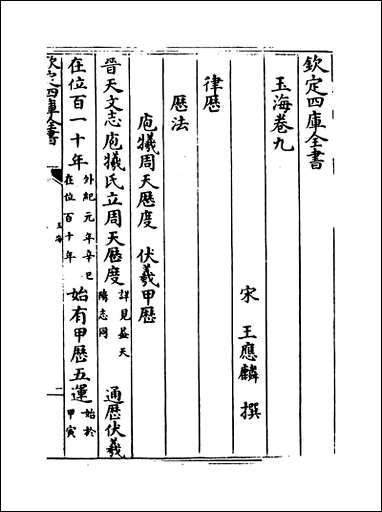 欽定四庫全書
玉海卷九
宋 王應麟 撰
律歴
歴法
庖犧周天歴度 伏羲甲歴
晉天文志庖犧氏立周天歴度詳見葢天隋志同 通歴伏羲
在位百一十年外紀元年辛巳在位百十年始有甲歴五運始於甲寅
欽定四庫全書
玉海
一